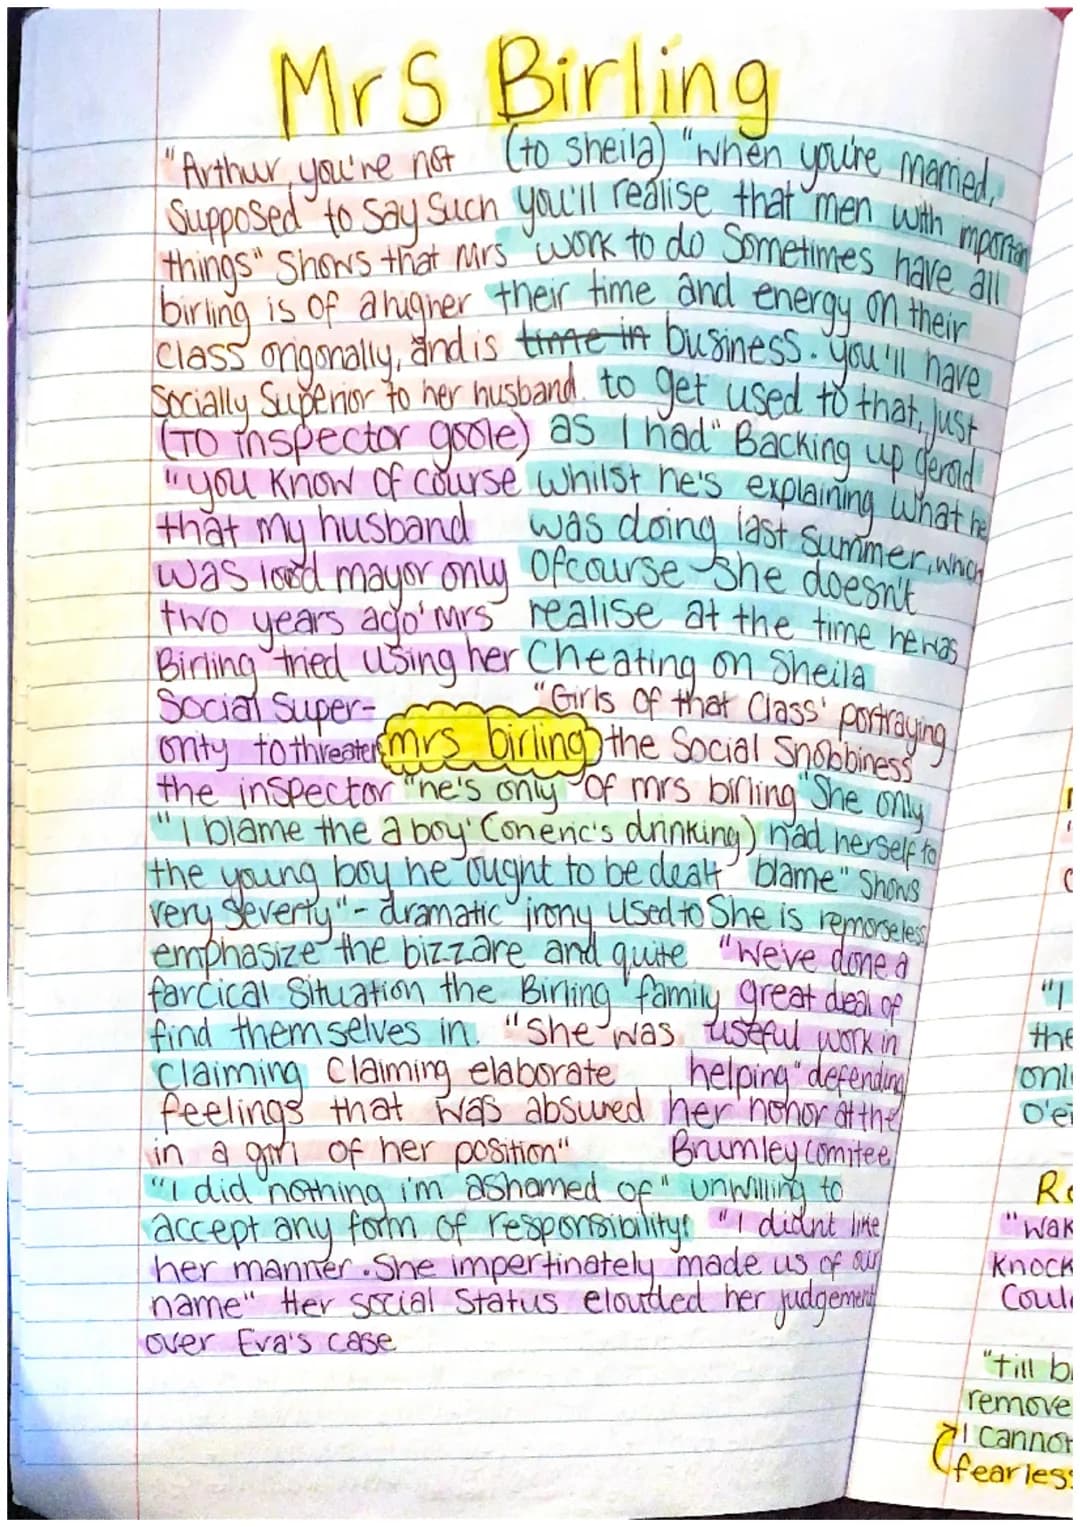 Mrs Birling
"Arthur, you're not
supposed to say such
things" Shows that Mrs
birling is of a higher
class origonally, and is
Socially Superior to her husband.
(to sheila) "when you're married,
you'll realise that men with importan
work to do Sometimes have all
their time and energy on their
time in business. you'll have
to get used to that, just
as I had" Backing up gerald
whilst he's explaining what he
was doing last summer, which
ofcourse she doesn't
realise at the time he was
Cheating on Sheila
(TO inspector goole)
"you know of course
that my husband
was lord mayor only
two years ago' Mrs
Birling tried using her
Social Super-
onty to threaten
the inspector
mrs birling
"Girls of that Class' portraying
the Social Snobbiness
of mrs birling
"he's only
a boy' (on eric's drinking)
"She only
had herself to
blame" Shows
She is remorseless
"I blame the
the young boy he ought to be dealt
very severty" - dramatic irony used to
emphasize the bizzare and quite
farcical Situation the Birling family
find themselves in.
"We've done a
great deal of
useful work in
helping" defending
her honor at the
Brumley comitee
"She was
claiming Claiming elaborate
feelings that was absured
in a girl of her position"
"I did nothing i'm ashamed of" unwilling to
accept any form of responsibility!
"I didnt like
her manner. She impertinately made us of our
name" Her social Status elouded her judgement
over Eva's case
"I
the
onl
o'e
R
"Wak
Knock
Coul
"till b
remove
I cannot
fearless